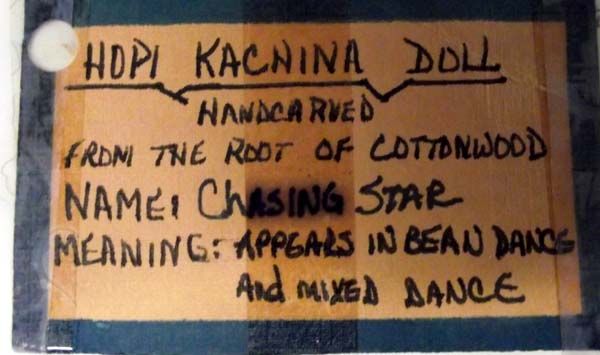 HOPI KACHINA DOLL
HANDCARVED
FROM THE ROOT OF COTTONWOOD
NAME: CHASING STAR
MEANING: APPEARS IN BEAN DANCE
And MIXED DANCE